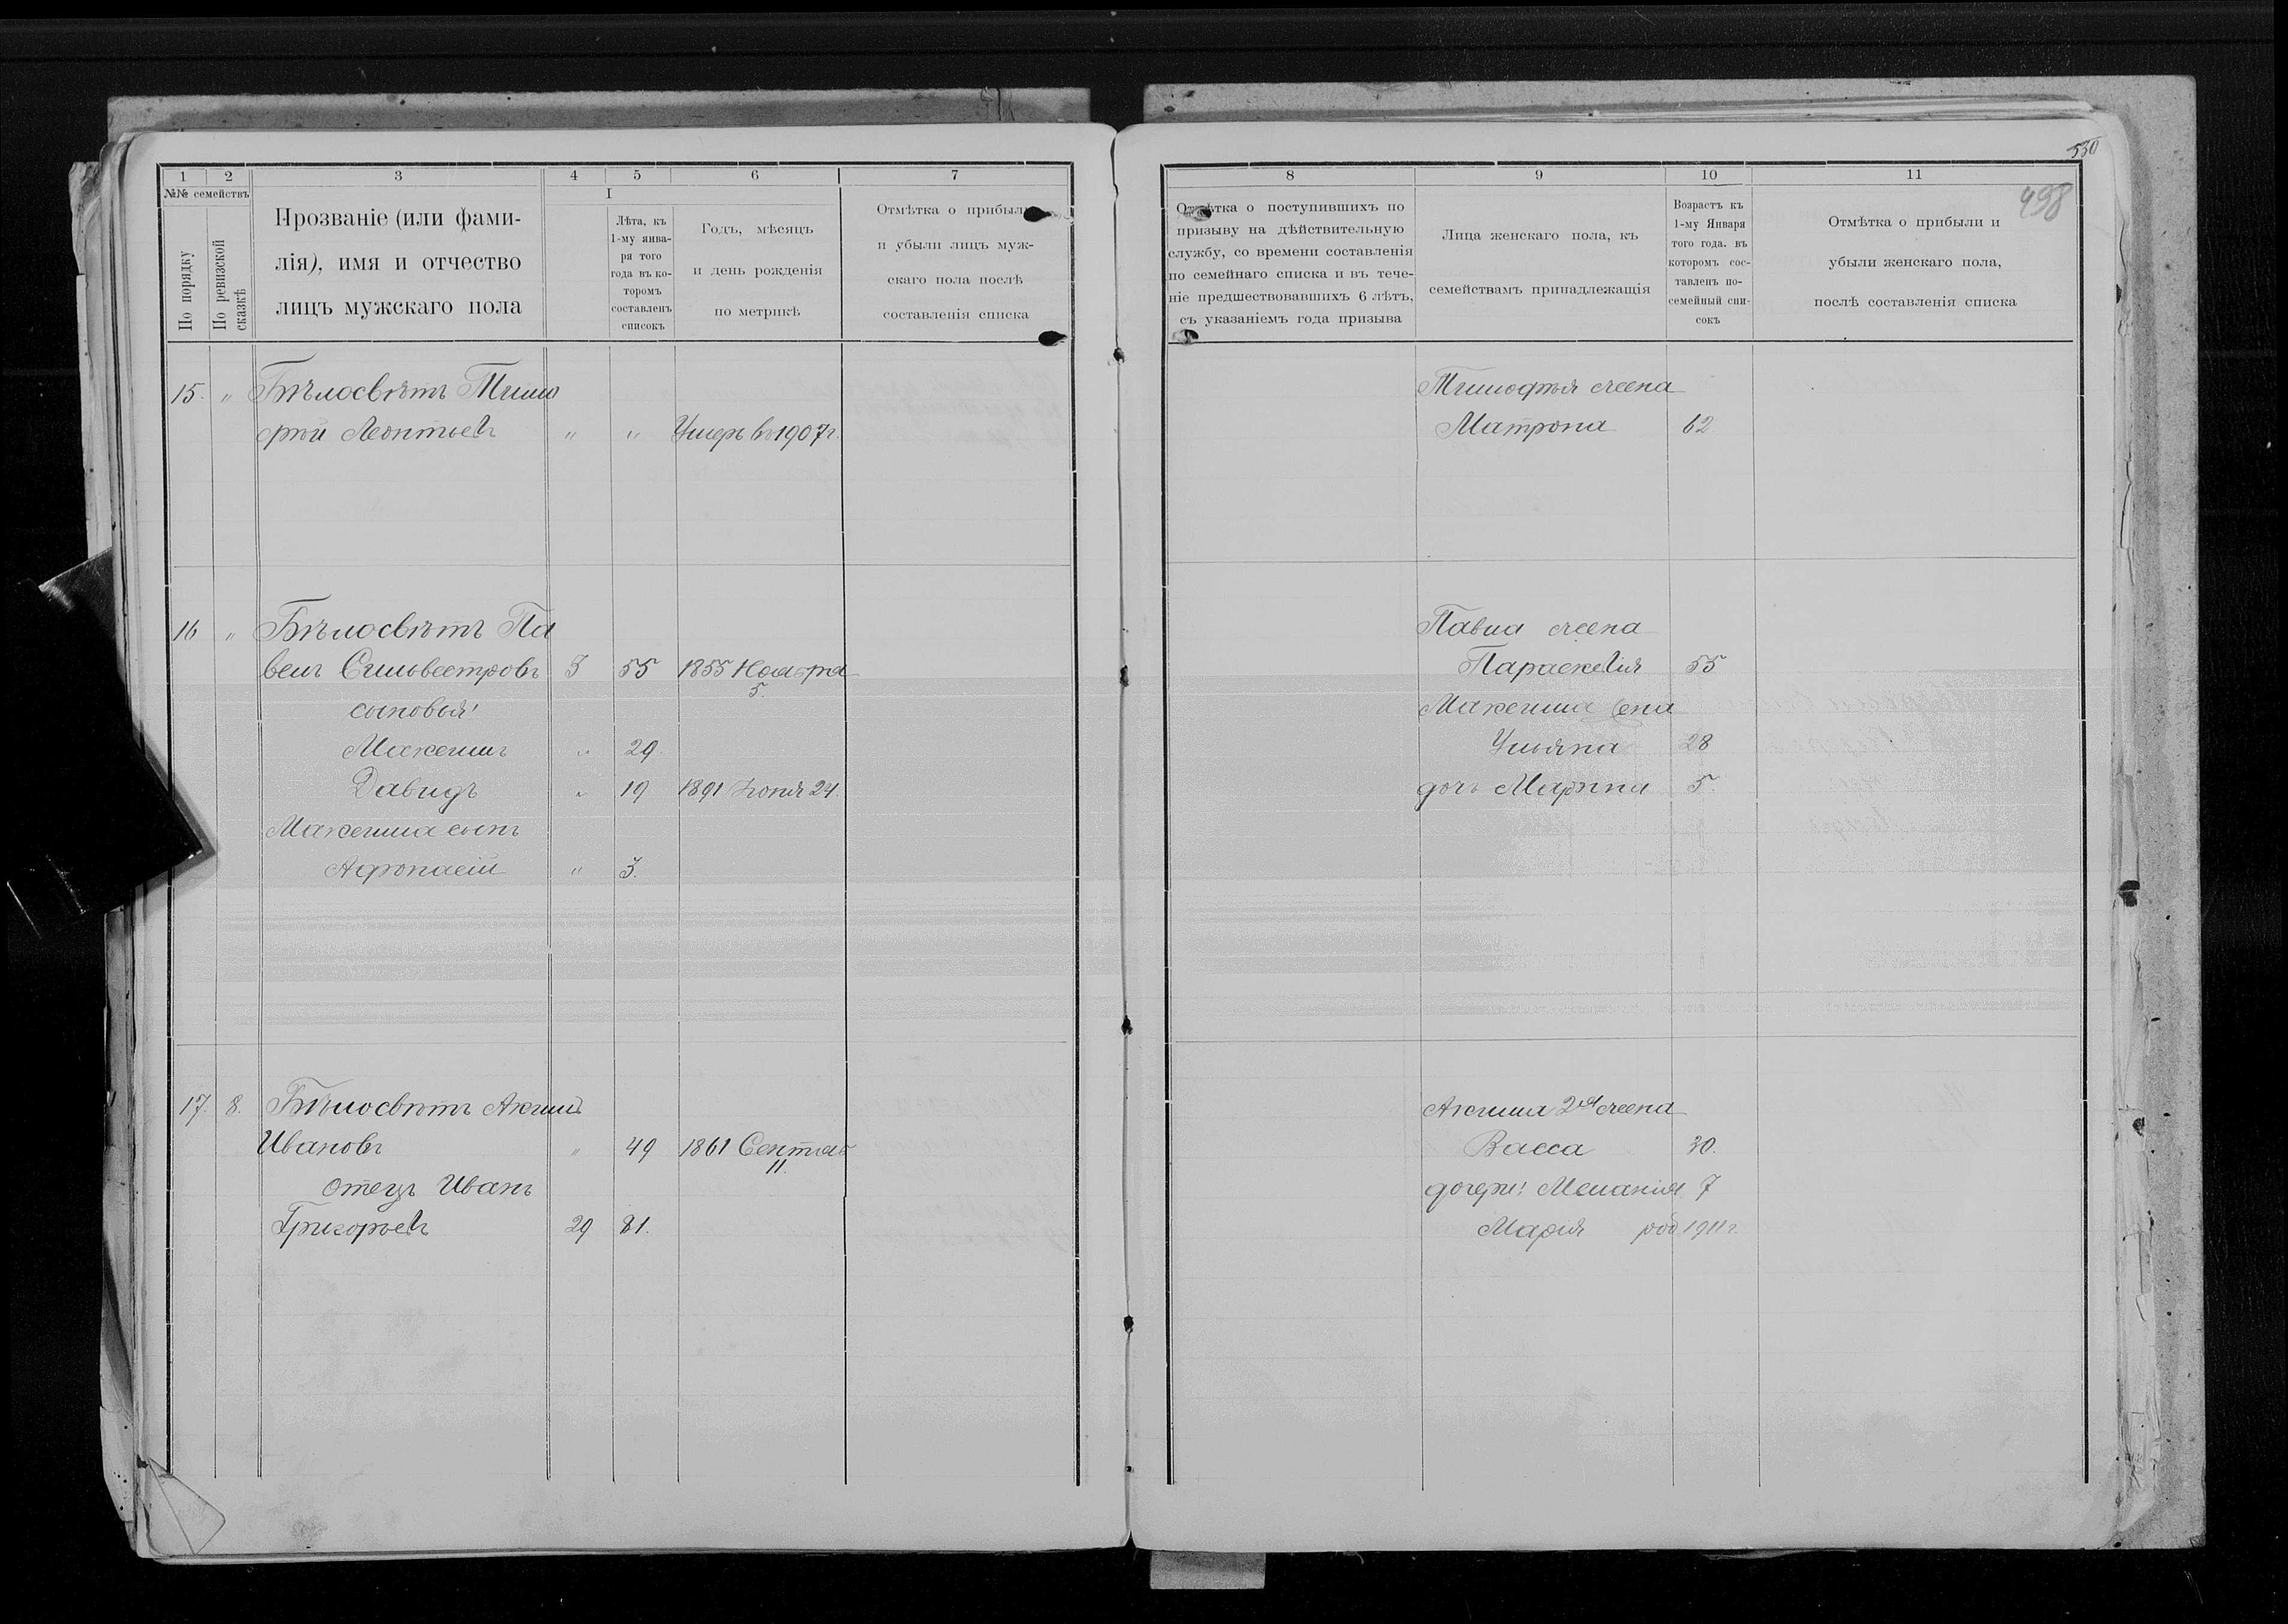 530
498
1 2 3 4 5 6 7
№№ семействъ
По порядку
По ревизской сказкѣ
Прозваніе (или фами-
лія), имя и отчество
лицъ мужскаго пола
I
Лѣта, къ
1-му янва-
ря того
года въ ко-
торомъ
составленъ
списокъ
Годъ, мѣсяцъ
и день рожденія
по метрикѣ
Отмѣтка о прибыли
и убыли лицъ муж-
скаго пола послѣ
составленія списка
15. " Бѣлосвѣтъ Тимо
фѣй Леонтьевъ " " Умеръ въ 1907 г.
16 " Бѣлосвѣтъ Па
велъ Сильвестровъ 3 55 1855 Ноября
5.
сыновья:
Максимъ " 29.
Давидъ " 19 1891 Іюня 24.
Максима сынъ
Афонасій " 3.
17. 8. Бѣлосвѣтъ Акимъ
Ивановъ " 49 1861 Сентяб
11.
отецъ Иванъ
Григорьевъ 29 81.
8 9 10 11
Отмѣтка о поступившихъ по
призыву на дѣйствительную
службу, со времени составленія
по семейнаго списка и въ тече-
ніе предшествовавшихъ 6 лѣтъ,
съ указаніемъ года призыва
Лица женскаго пола, къ
семействамъ принадлежащія
Возрастъ къ
1-му Января
того года. въ
которомъ сос-
тавленъ по-
семейный спи-
сокъ
Отмѣтка о прибыли и
убыли женскаго пола,
послѣ составленія списка
Тимофѣя жена
Матрона 62
Павла жена
Параскевія 55
Максима жена
Ульяна 28
дочь Марина 5.
Акима 2ая жена
Васса 30.
дочери: Меланія 7
Марія род 1911 г.